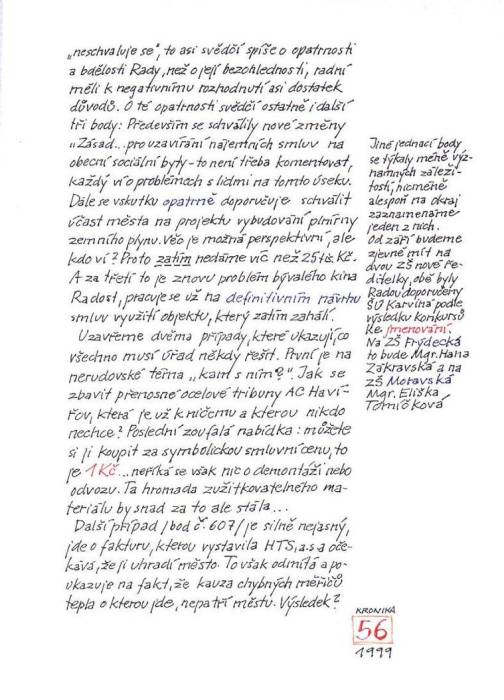 „neschvaluje se", to asi svědčí spíše o opatrnosti
a bdělosti Rady, než o její bezohlednosti, radní
měli k negativnímu rozhodnutí asi dostatek
důvodů. O té opatrnosti svědčí ostatně i další
tři body: Především se schválily nové změny
„Zásad... pro uzavírání nájemních smluv na
obecní sociální byty - to není třeba komentovat,
každý ví o problémech s lidmi na tomto úseku.
Dále se vskutku opatrně doporučuje schválit
účast města na projektu vybudování plnírny
zemního plynu. Věc je možná perspektivní, ale
kdo ví? Proto zatím nedáme víc než 25 tis. Kč.
A za třetí to je znovu problém bývalého kina
Radost, pracuje se už na definitivním návrhu
smluv využití objektu, který zatím zahálí.
Uzavřeme dvěma případy, které ukazují, co
všechno musí úřad někdy řešit. První je na
nerudovské téma „kam s ním?". Jak se
zbavit přenosné ocelové tribuny AC Haví-
řov, která je už k ničemu a kterou nikdo
nechce? Poslední zoufalá nabídka: můžete
si ji koupit za symbolickou smluvní cenu, to
je 1 Kč... neříká se však nic o demontáži nebo
odvozu. Ta hromada zužitkovatelného ma-
teriálu by snad za to ale stála...
Další případ /bod č. 607/ je silně nejasný,
jde o fakturu, kterou vystavila HTS, a.s. a oče-
kává, že ji uhradí město. To však odmítá a po-
ukazuje na fakt, že kauza chybných měřičů
tepla o kterou jde, nepatří městu. Výsledek?
Jiné jednací body
se týkaly méně výz-
namných záleži-
tostí, nicméně
alespoň na okraj
zaznamenáme
jeden z nich.
Od září budeme
zjevně mít na
dvou ZŠ nové ře-
ditelky, obě byly
Radou doporučeny
ŠÚ Karviná podle
výsledku konkursů
ke jmenování.
Na ZŠ Frýdecká
to bude Mgr. Hana
Zakravská a na
ZŠ Moravská
Mgr. Eliška
Tomíčková
KRONIKA
56
1999